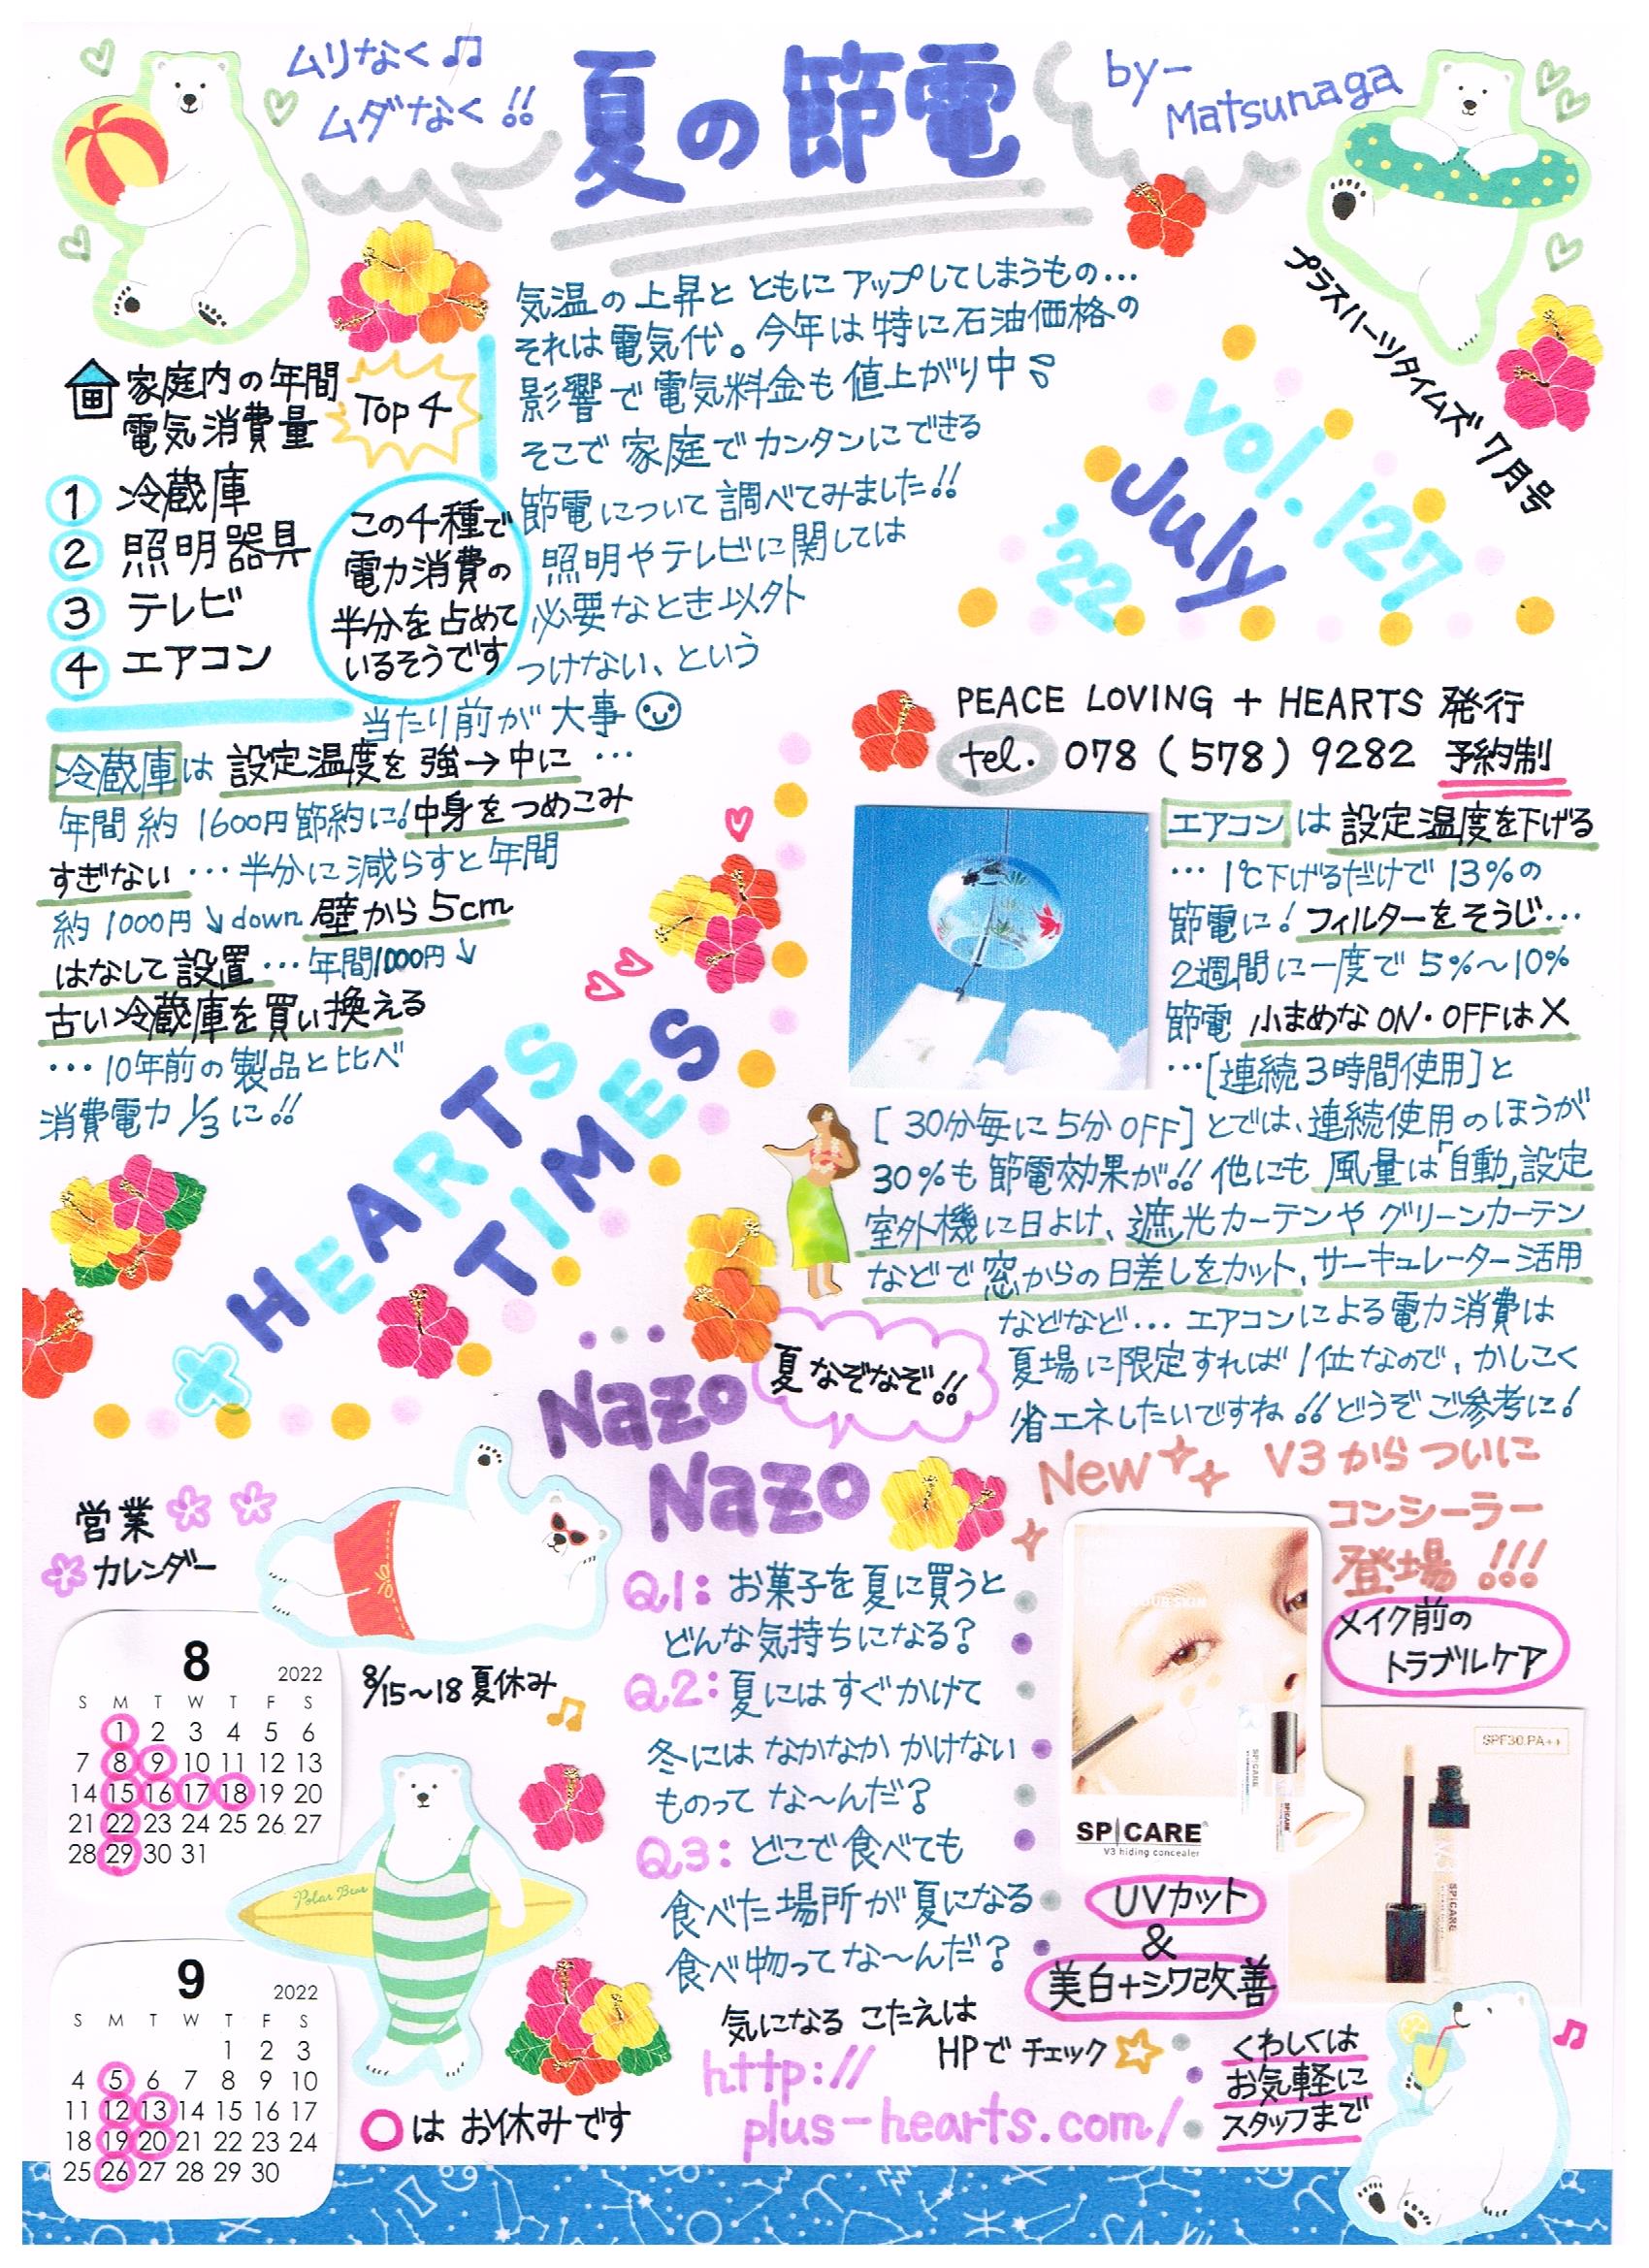 ムリなく♫
ムダなく!!
夏の節電
by-
Matsunaga
プラスハーツタイムズ 7月号
vol.127
July
'22
気温の上昇と ともに アップしてしまうもの…
それは電気代。今年は特に石油価格の
影響で電気料金も値上がり中
そこで 家庭でカンタンにできる
節電について調べてみました!!
照明やテレビに関しては
必要なとき以外
つけない、という
当たり前が大事
家庭内の年間
電気消費量
Top 4
① 冷蔵庫
② 照明器具
③ テレビ
④ エアコン
この4種で
電力消費の
半分を占めて
いるそうです
冷蔵庫は 設定温度を 強→中に …
年間 約 1600円節約に!中身をつめこみ
すぎない … 半分に減らすと年間
約 1000円↘down 壁から 5cm
はなして 設置 … 年間1000円↓
古い冷蔵庫を買い換える
… 10年前の製品と比べ
消費電力 1/3 に!!
PEACE LOVING + HEARTS 発行
tel. 078 (578) 9282 予約制
エアコン は 設定温度を下げる
… 1℃下げるだけで 13%の
節電に! フィルターをそうじ…
2週間に一度で 5%〜10%
節電 小まめなON・OFFは×
…[連続3時間使用]と
[30分毎に5分OFF]とでは、連続使用のほうが
30%も節電効果が!! 他にも 風量は「自動」設定
室外機に日よけ、遮光カーテンや グリーンカーテン
などで 窓からの日差しをカット、サーキュレーター活用
などなど… エアコンによる電力消費は
夏場に限定すれば 1位なので、かしこく
省エネしたいですね!! どうぞご参考に!
HEARTS
TIMES
Nazo
Nazo
夏 なぞなぞ!!
Q1: お菓子を夏に買うと
どんな気持ちになる?
Q2: 夏にはすぐかけて
冬には なかなか かけない
ものって な〜んだ?
Q3: どこで食べても
食べた場所が夏になる
食べ物ってな〜んだ?
気になる こたえは
HPで チェック
http://
plus-hearts.com/
New
V3からついに
コンシーラー
登場 !!!
メイク前の
トラブルケア
SPICARE
V3 hiding concealer
SPF30.PA++
SPICARE
UVカット
&
美白+シワ改善
くわしくは
お気軽に
スタッフまで
営業
カレンダー
8
2022
S M T W T F S
1 2 3 4 5 6
7 8 9 10 11 12 13
14 15 16 17 18 19 20
21 22 23 24 25 26 27
28 29 30 31
8/15〜18 夏休み
Polar Bear
9
2022
S M T W T F S
1 2 3
4 5 6 7 8 9 10
11 12 13 14 15 16 17
18 19 20 21 22 23 24
25 26 27 28 29 30
○は お休みです